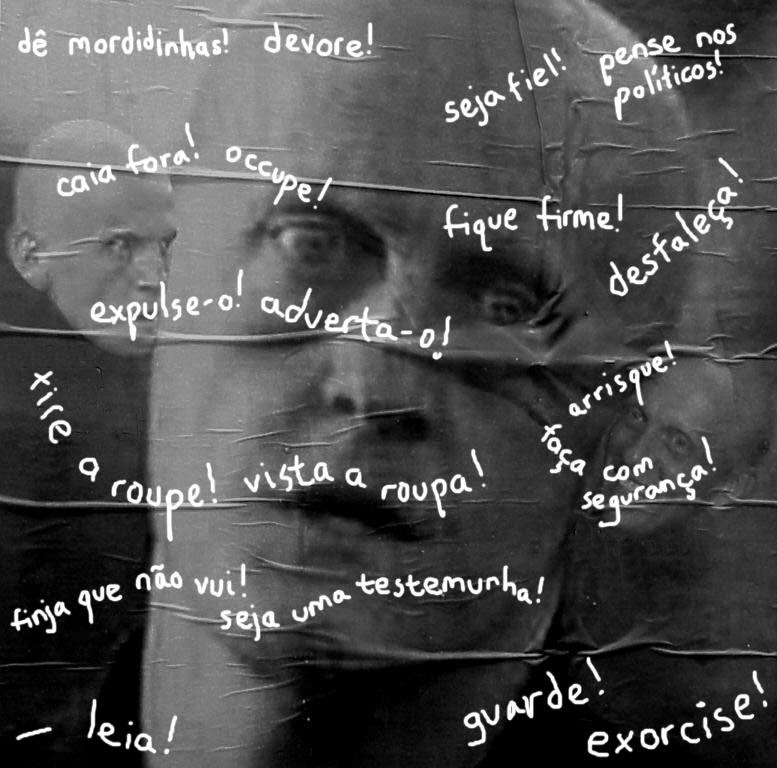 dê mordidinhas! devore!
seja fiel!
pense nos
políticos!
caia fora! occupe!
fique firme!
desfaleça!
expulse-o! adverta-o!
arrisque!
xire a roupe! vista a roupa!
faça com
segurança!
finja que não vui!
seja uma testemunha!
guarde!
– leia!
exorcise!